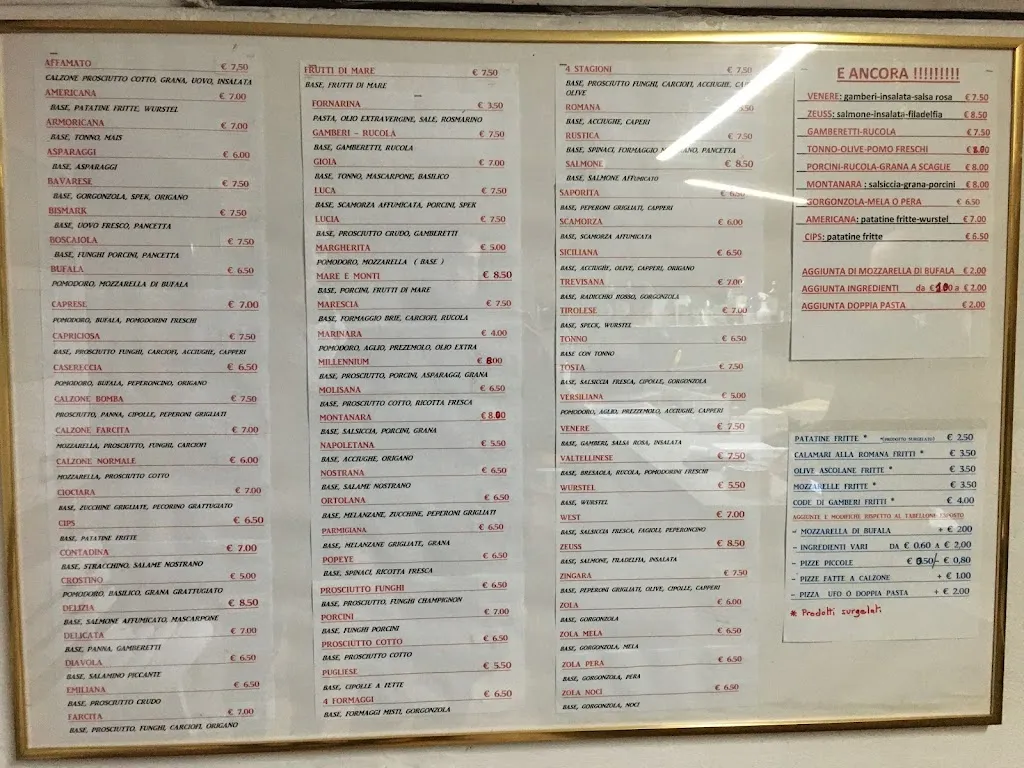 AFFAMATO € 7,50
CALZONE PROSCIUTTO COTTO, GRANA, UOVO, INSALATA
AMERICANA € 7.00
BASE, PATATINE FRITTE, WURSTEL
ARMORICANA € 7.00
BASE, TONNO, MAIS
ASPARAGGI € 6.00
BASE, ASPARAGGI
BAVARESE € 7.50
BASE, GORGONZOLA, SPEK, ORIGANO
BISMARK € 7.50
BASE, UOVO FRESCO, PANCETTA
BOSCAIOLA € 7.50
BASE, FUNGHI PORCINI, PANCETTA
BUFALA € 6.50
POMODORO, MOZZARELLA DI BUFALA
CAPRESE € 7.00
POMODORO, BUFALA, POMODORINI FRESCHI
CAPRICIOSA € 7.50
BASE, PROSCIUTTO FUNGHI, CARCIOFI, ACCIUGHE, CAPPERI
CASERECCIA € 6.50
POMODORO, BUFALA, PEPERONCINO, ORIGANO
CALZONE BOMBA € 7.50
PROSCIUTTO, PANNA, CIPOLLE, PEPERONI GRIGLIATI
CALZONE FARCITA € 7.00
MOZZARELLA, PROSCIUTTO, FUNGHI, CARCIOFI
CALZONE NORMALE € 6.00
MOZZARELLA, PROSCIUTTO COTTO
CIOCIARA € 7.00
BASE, ZUCCHINE GRIGLIATE, PECORINO GRATTUGIATO
CIPS € 6.50
BASE, PATATINE FRITTE
CONTADINA € 7.00
BASE, STRACCHINO, SALAME NOSTRANO
CROSTINO € 5.00
POMODORO, BASILICO, GRANA GRATTUGIATO
DELIZIA € 8.50
BASE, SALMONE AFFUMICATO, MASCARPONE
DELICATA € 7.00
BASE, PANNA, GAMBERETTI
DIAVOLA € 6.50
BASE, SALAMINO PICCANTE
EMILIANA € 6.50
BASE, PROSCIUTTO CRUDO
FARCITA € 7.00
BASE, PROSCIUTTO, FUNGHI, CARCIOFI, ORIGANO
FRUTTI DI MARE € 7.50
BASE, FRUTTI DI MARE
FORNARINA € 3.50
PASTA, OLIO EXTRAVERGINE, SALE, ROSMARINO
GAMBERI - RUCOLA € 7.50
BASE, GAMBERETTI, RUCOLA
GIOIA € 7.00
BASE, TONNO, MASCARPONE, BASILICO
LUCA € 7.50
BASE, SCAMORZA AFFUMICATA, PORCINI, SPEK
LUCIA € 7.50
BASE, PROSCIUTTO CRUDO, GAMBERETTI
MARGHERITA € 5.00
POMODORO, MOZZARELLA ( BASE )
MARE E MONTI € 8.50
BASE, PORCINI, FRUTTI DI MARE
MARESCIA € 7.50
BASE, FORMAGGIO BRIE, CARCIOFI, RUCOLA
MARINARA € 4.00
POMODORO, AGLIO, PREZEMOLO, OLIO EXTRA
MILLENNIUM € 8.00
BASE, PROSCIUTTO, PORCINI, ASPARAGI, GRANA
MOLISANA € 6.50
BASE, PROSCIUTTO COTTO, RICOTTA FRESCA
MONTANARA € 8.00
BASE, SALSICCIA, PORCINI, GRANA
NAPOLETANA € 5.50
BASE, ACCIUGHE, ORIGANO
NOSTRANA € 6.50
BASE, SALAME NOSTRANO
ORTOLANA € 6.50
BASE, MELANZANE, ZUCCHINE, PEPERONI GRIGLIATI
PARMIGIANA € 6.50
BASE, MELANZANE GRIGLIATE, GRANA
POPEYE € 6.50
BASE, SPINACI, RICOTTA FRESCA
PROSCIUTTO FUNGHI € 6.50
BASE, PROSCIUTTO, FUNGHI CHAMPIGNON
PORCINI € 7.00
BASE, FUNGHI PORCINI
PROSCIUTTO COTTO € 6.50
BASE, PROSCIUTTO COTTO
PUGLIESE € 5.50
BASE, CIPOLLE A FETTE
4 FORMAGGI € 6.50
BASE, FORMAGGI MISTI, GORGONZOLA
4 STAGIONI € 7.50
BASE, PROSCIUTTO FUNGHI, CARCIOFI, ACCIUGHE,
OLIVE
ROMANA
BASE, ACCIUGHE, CAPERI
RUSTICA € 7.50
BASE, SPINACI, FORMAGGIO PANCETTA
SALMONE € 8.50
BASE, SALMONE AFFUMICATO
SAPORITA € 6.50
BASE, PEPERONI GRIGLIATI, CAPPERI
SCAMORZA € 6.00
BASE, SCAMORZA AFFUMICATA
SICILIANA € 6.50
BASE, ACCIUGHE, OLIVE, CAPPERI, ORIGANO
TREVISANA € 7.00
BASE, RADICCHIO ROSSO, GORGONZOLA
TIROLESE € 7.00
BASE, SPECK, WURSTEL
TONNO € 6.50
BASE CON TONNO
TOSTA € 7.50
BASE, SALSICCIA FRESCA, CIPOLLE, GORGONZOLA
VERSILIANA € 5.00
POMODORO, AGLIO, PREZZEMOLO, ACCIUGHE, CAPPERI
VENERE € 7.50
BASE, GAMBERI, SALSA ROSA, INSALATA
VALTELLINESE € 7.50
BASE, BRESAOLA, RUCOLA, POMODORINI FRESCHI
WURSTEL € 5.50
BASE, WURSTEL
WEST € 7.00
BASE, SALSICCIA FRESCA, FAGIOLI, PEPERONCINO
ZEUSS € 8.50
BASE, SALMONE, FILADELFIA, INSALATA
ZINGARA € 7.50
BASE, PEPERONI GRIGLIATI, OLIVE, CIPOLLE, CAPPERI
ZOLA € 6.00
BASE, GORGONZOLA
ZOLA MELA € 6.50
BASE, GORGONZOLA, MELA
ZOLA PERA € 6.50
BASE, GORGONZOLA, PERA
ZOLA NOCI € 6.50
BASE, GORGONZOLA, NOCI
E ANCORA !!!!!!!!!
VENERE: gamberi-insalata-salsa rosa € 7.50
ZEUSS: salmone-insalata-filadelfia € 8.50
GAMBERETTI-RUCOLA € 7.50
TONNO-OLIVE-POMO FRESCHI € 8.00
PORCINI-RUCOLA-GRANA A SCAGLIE € 8.00
MONTANARA : salsiccia-grana-porcini € 8.00
GORGONZOLA-MELA O PERA € 6.50
AMERICANA: patatine fritte-wurstel € 7.00
CIPS: patatine fritte € 6.50
AGGIUNTA DI MOZZARELLA DI BUFALA € 2.00
AGGIUNTA INGREDIENTI da € 1.00 a € 2.00
AGGIUNTA DOPPIA PASTA € 2.00
PATATINE FRITTE * *(PRODOTTO SURGELATO) € 2.50
CALAMARI ALLA ROMANA FRITTI * € 3.50
OLIVE ASCOLANE FRITTE * € 3.50
MOZZARELLE FRITTE * € 3.50
CODE DI GAMBERI FRITTI * € 4.00
AGGIUNTE E MODIFICHE RISPETTO AL TABELLONE ESPOSTO
- MOZZARELLA DI BUFALA + € 2.00
- INGREDIENTI VARI DA € 0.60 A € 2,00
- PIZZE PICCOLE € 0.50/- € 0,80
- PIZZE FATTE A CALZONE + € 1.00
- PIZZA UFO O DOPPIA PASTA + € 2.00
* Prodotti surgelati